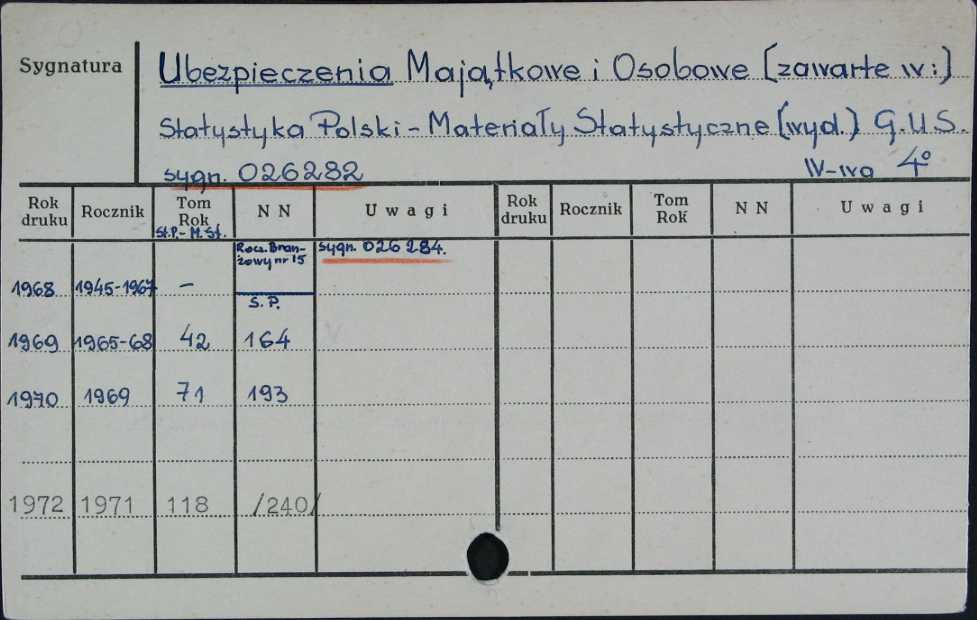 Sygnatura
Ubezpieczenia Majątkowe i Osobowe (zawarte w:)
Statystyka Polski - Materiały Statystyczne (wyd.) G.U.S.
sygn. 026282 W-wa 4°
Rok druku Rocznik Tom Rok St.P.- M.St. N N Uwagi Rok druku Rocznik Tom Rok N N Uwagi
Rocz. Bran- sygn. 026 284.
żowy nr 15
1968 1945-1967 -
S. P.
1969 1965-68 42 164
1970 1969 71 193
1972 1971 118 /240/